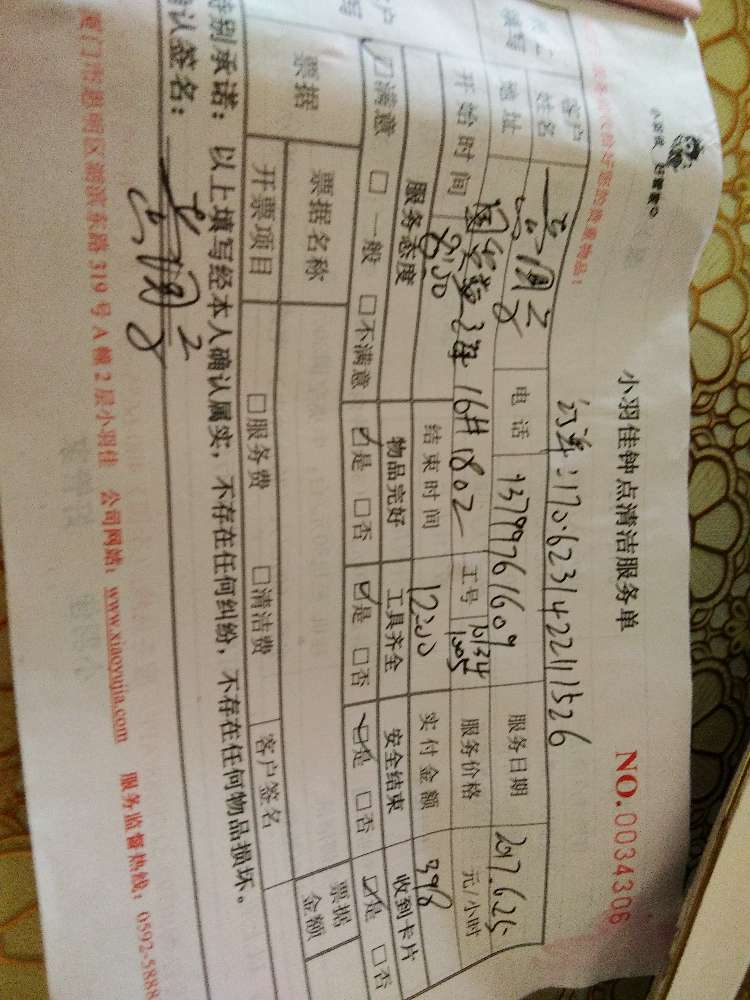 小羽佳 好管家
小羽佳钟点清洁服务单
NO.0034306
订单:1706231422111526
客户
姓名
电话
13799761609
服务日期
2017.6.25
地址
16# 1802
工号
服务价格
元/小时
开始时间
8:00
结束时间
12:00
实付金额
398
服务态度
物品完好
工具齐全
安全结束
收到卡片
☑满意 □一般 □不满意
☑是 □否
☑是 □否
☑是 □否
☑是 □否
票据
票据名称
票据
金额
开票项目
□服务费
□清洁费
客户签名
特别承诺:以上填写经本人确认属实,不存在任何纠纷,不存在任何物品损坏。
确认签名:
厦门市思明区湖滨东路319号A幢2层小羽佳 公司网站:www.xiaoyujia.com 服务监督热线:0592-5888